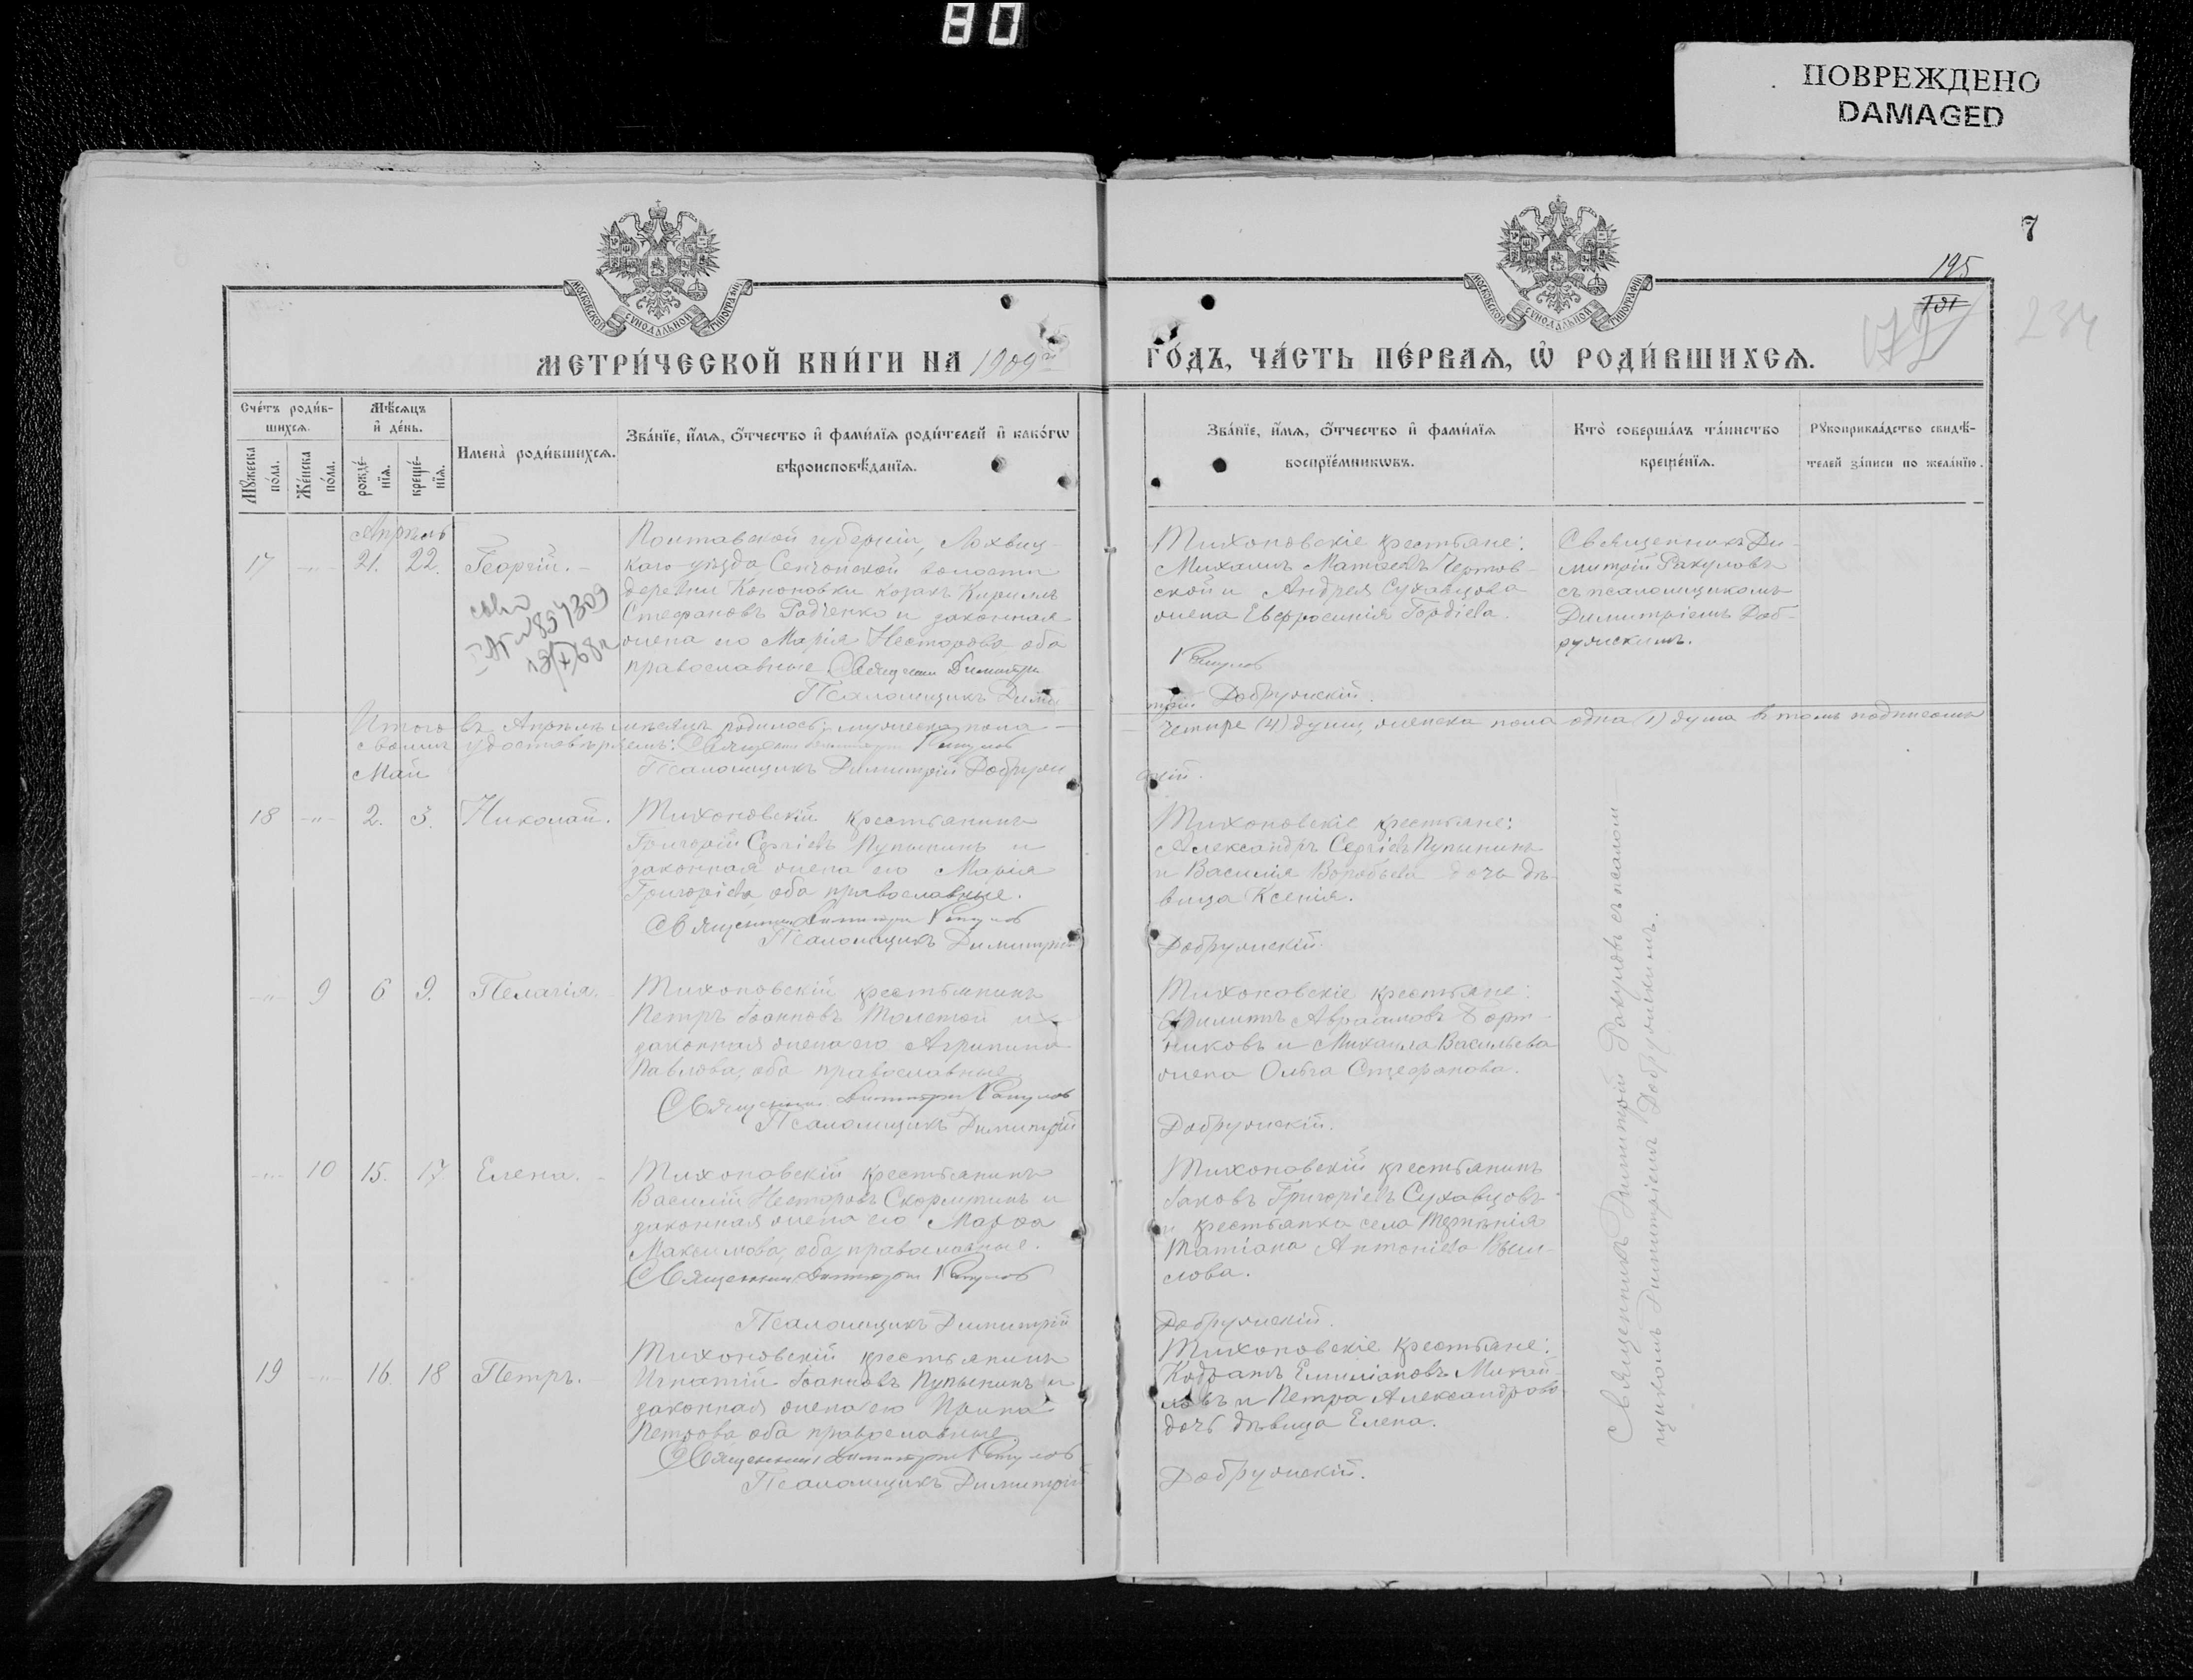 80
ПОВРЕЖДЕНО
DAMAGED
7
195
172
234
МОСКОВСКОЙ СѴНОДАЛЬНОЙ ТИПОГРАФІИ
МОСКОВСКОЙ СѴНОДАЛЬНОЙ ТИПОГРАФІИ
МЕТРИ́ЧЕСКОЙ КНИ́ГИ НА 1909й
ГО́ДЪ, ЧА́СТЬ ПЕ́РВАѦ, Ѡ҆ РОДИ́ВШИХСѦ.
Сче́тъ роди́в-
шихсѧ.
Мꙋ́жеска по́ла.
Же́нска по́ла.
Мѣ́сѧцъ
и҆ де́нь.
рожде́-
нїѧ.
креще́-
нїѧ.
И҆мена̀ роди́вшихсѧ.
Зва́нїе, и҆́мѧ, ѻ҆́тчество и҆ фами́лїѧ роди́телей и҆ како́гѡ
вѣроисповѣ́данїѧ.
Зва́нїе, и҆́мѧ, ѻ҆́тчество и҆ фами́лїѧ
воспрїе́мникѡвъ.
Кто̀ соверша́лъ та́инство
креще́нїѧ.
Рꙋкоприкла́дство свидѣ́-
телей за́писи по жела́нїю.
Апрѣль
17 -"- 21. 22. Георгій. -
Полтавской губерніи, Лохвиц-
каго уѣзда Сенчанской волости
деревни Кононовки козакъ Кириллъ
Стефановъ Радченко и законная
жена его Марія Несторова оба
православные. Священникъ Димитрій
Псаломщикъ Дими
Тихоновскіе крестьяне:
Михаилъ Матѳеевъ Чертов-
ской и Андрея Суховцова
жена Евфросинія Гордіева.
Ракуловъ
трій Добружскій.
Священникъ Ди-
митрій Ракуловъ
съ псаломщикомъ
Димитріемъ Доб-
ружскимъ.
Итого въ Апрѣлѣ мѣсяцѣ родилось: мужеска пола -
четыре (4) души, женска пола одна (1) душа въ томъ подписомъ
своимъ удостовѣряемъ: Священникъ Димитрій Ракуловъ
Псаломщикъ Димитрій Добруж
скій.
Май
18 -"- 2. 3. Николай.
Тихоновскій крестьянинъ
Григорій Сергіевъ Пупынинъ и
законная жена его Марія
Григоріева, оба православные.
Священникъ Димитрій Ракуловъ
Псаломщикъ Димитрій
Тихоновскіе крестьяне:
Александръ Сергіевъ Пупынинъ
и Василія Воробьева дочь дѣ-
вица Ксенія.
Добружскій.
-"- 9 6 9. Пелагія.
Тихоновскій крестьянинъ
Петръ Іоанновъ Толстой и
законная жена его Агрипина
Павлова, оба православные.
Священникъ Димитрій Ракуловъ
Псаломщикъ Димитрій
Тихоновскіе крестьяне:
Филиппъ Авраамовъ Борт-
никовъ и Михаила Васильева
жена Ольга Стефанова.
Добружскій.
-"- 10 15. 17 Елена. -
Тихоновскій крестьянинъ
Василій Несторовъ Скоркинъ и
законная жена его Марѳа
Максимова, оба православные.
Священникъ Димитрій Ракуловъ
Псаломщикъ Димитрій
Тихоновскій крестьянинъ
Іаковъ Григоріевъ Суховцовъ
и крестьянка села
Татіана Антоніева
слова.
Добружскій.
19 -"- 16. 18 Петръ. -
Тихоновскій крестьянинъ
Игнатій Іоанновъ Пупынинъ и
законная жена его Ирина
Петрова, оба православные.
Священникъ Димитрій Ракуловъ
Псаломщикъ Димитрій
Тихоновскіе крестьяне:
Кодратъ Емиліановъ Михай-
ловъ и Петра Александрова
дочь дѣвица Елена.
Добружскій.
Священникъ Димитрій Ракуловъ съ псалом-
щикомъ Димитріемъ Добружскимъ.